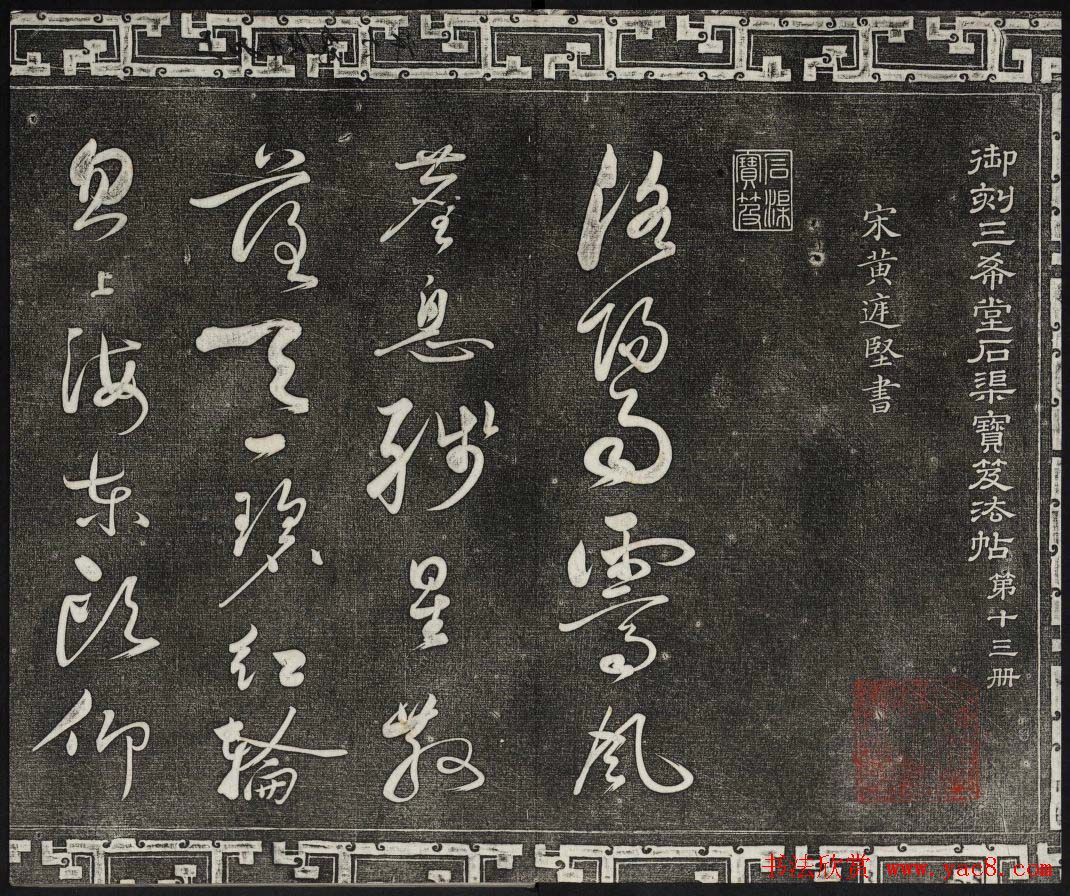 御刻三希堂石渠寶笈法帖 第十三册
宋黄庭堅書
石渠寶笈
洛陽雨霽風
息殘星散
落天一碧紅輪
忽上海東頭仰
书法欣赏 www.yac8.com